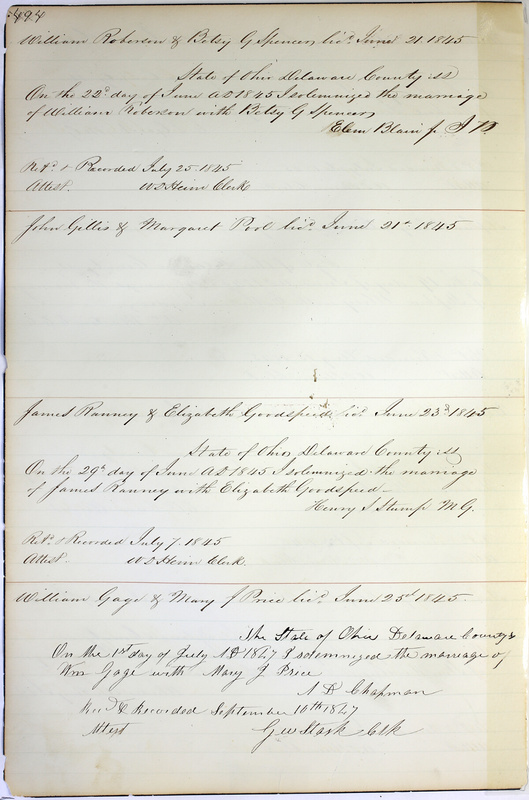 494
William Roberson & Betsy G Spencer, lic.d June 21. 1845
State of Ohio Delaware County ss
On the 22.d day of June AD 1845 I solemnized the marriage
of William Roberson with Betsy G Spencer,
Eben Blain jr. J P
Ret.d & Recorded July 25. 1845
Attest. W D Heim Clerk
John Gillis & Margaret Pool lic.d June 21st 1845
James Ranney & Elizabeth Goodspeed lic.d June 23.d 1845
State of Ohio Delaware County ss
On the 29th day of June AD 1845 I solemnized the marriage
of James Ranney with Elizabeth Goodspeed
Henry S Stump M.G.
Ret.d & Recorded July 7. 1845
Attest. W D Heim Clerk.
William Gage & Mary J Price lic.d June 25th 1845.
The State of Ohio Delaware County ss
On the 1st day of July AD 1847 I solemnized the marriage of
Wm Gage with Mary J Price
A D Chapman
Rec.d & Recorded September 10th 1847
Attest G W Stark Clk